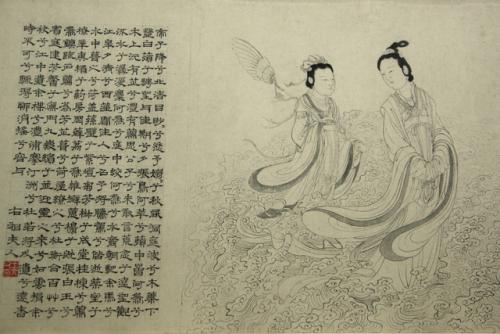 帝子降兮北渚目眇兮愁予嫋兮秋風洞庭波兮木葉下
登白薠兮騁望與佳期兮夕張鳥何萃兮蘋中罾何為兮
木上沅有茝兮澧有蘭思公子兮未敢言荒忽兮遠望觀
流水兮潺湲麋何為兮庭中蛟何為兮水裔朝馳余馬兮
江皋夕濟兮西澨聞佳人兮召予將騰駕兮偕逝築室兮
水中葺之兮荷蓋蓀壁兮紫壇播芳椒兮成堂桂棟兮蘭
橑辛夷楣兮藥房罔薜荔兮為帷擗蕙櫋兮既張白玉兮
為鎮疏石蘭兮為芳芷葺兮荷屋繚之兮杜衡合百草兮
實庭建芳馨兮廡門九嶷繽兮並迎靈之來兮如雲捐余
袂兮江中遺余褋兮澧浦搴汀洲兮杜若將以遺兮遠者
時不可兮驟得聊逍遙兮容與
右湘夫人